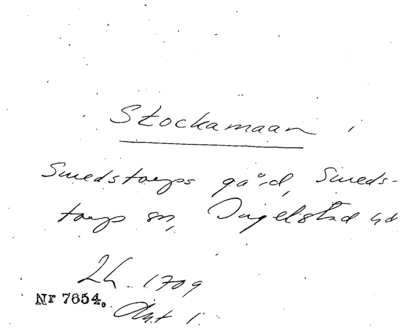 Stockamaan
Smedstorps gård, Smeds-
torps sn, Ingelstad hd
Lh. 1709
Nr 7654. Akt 1.